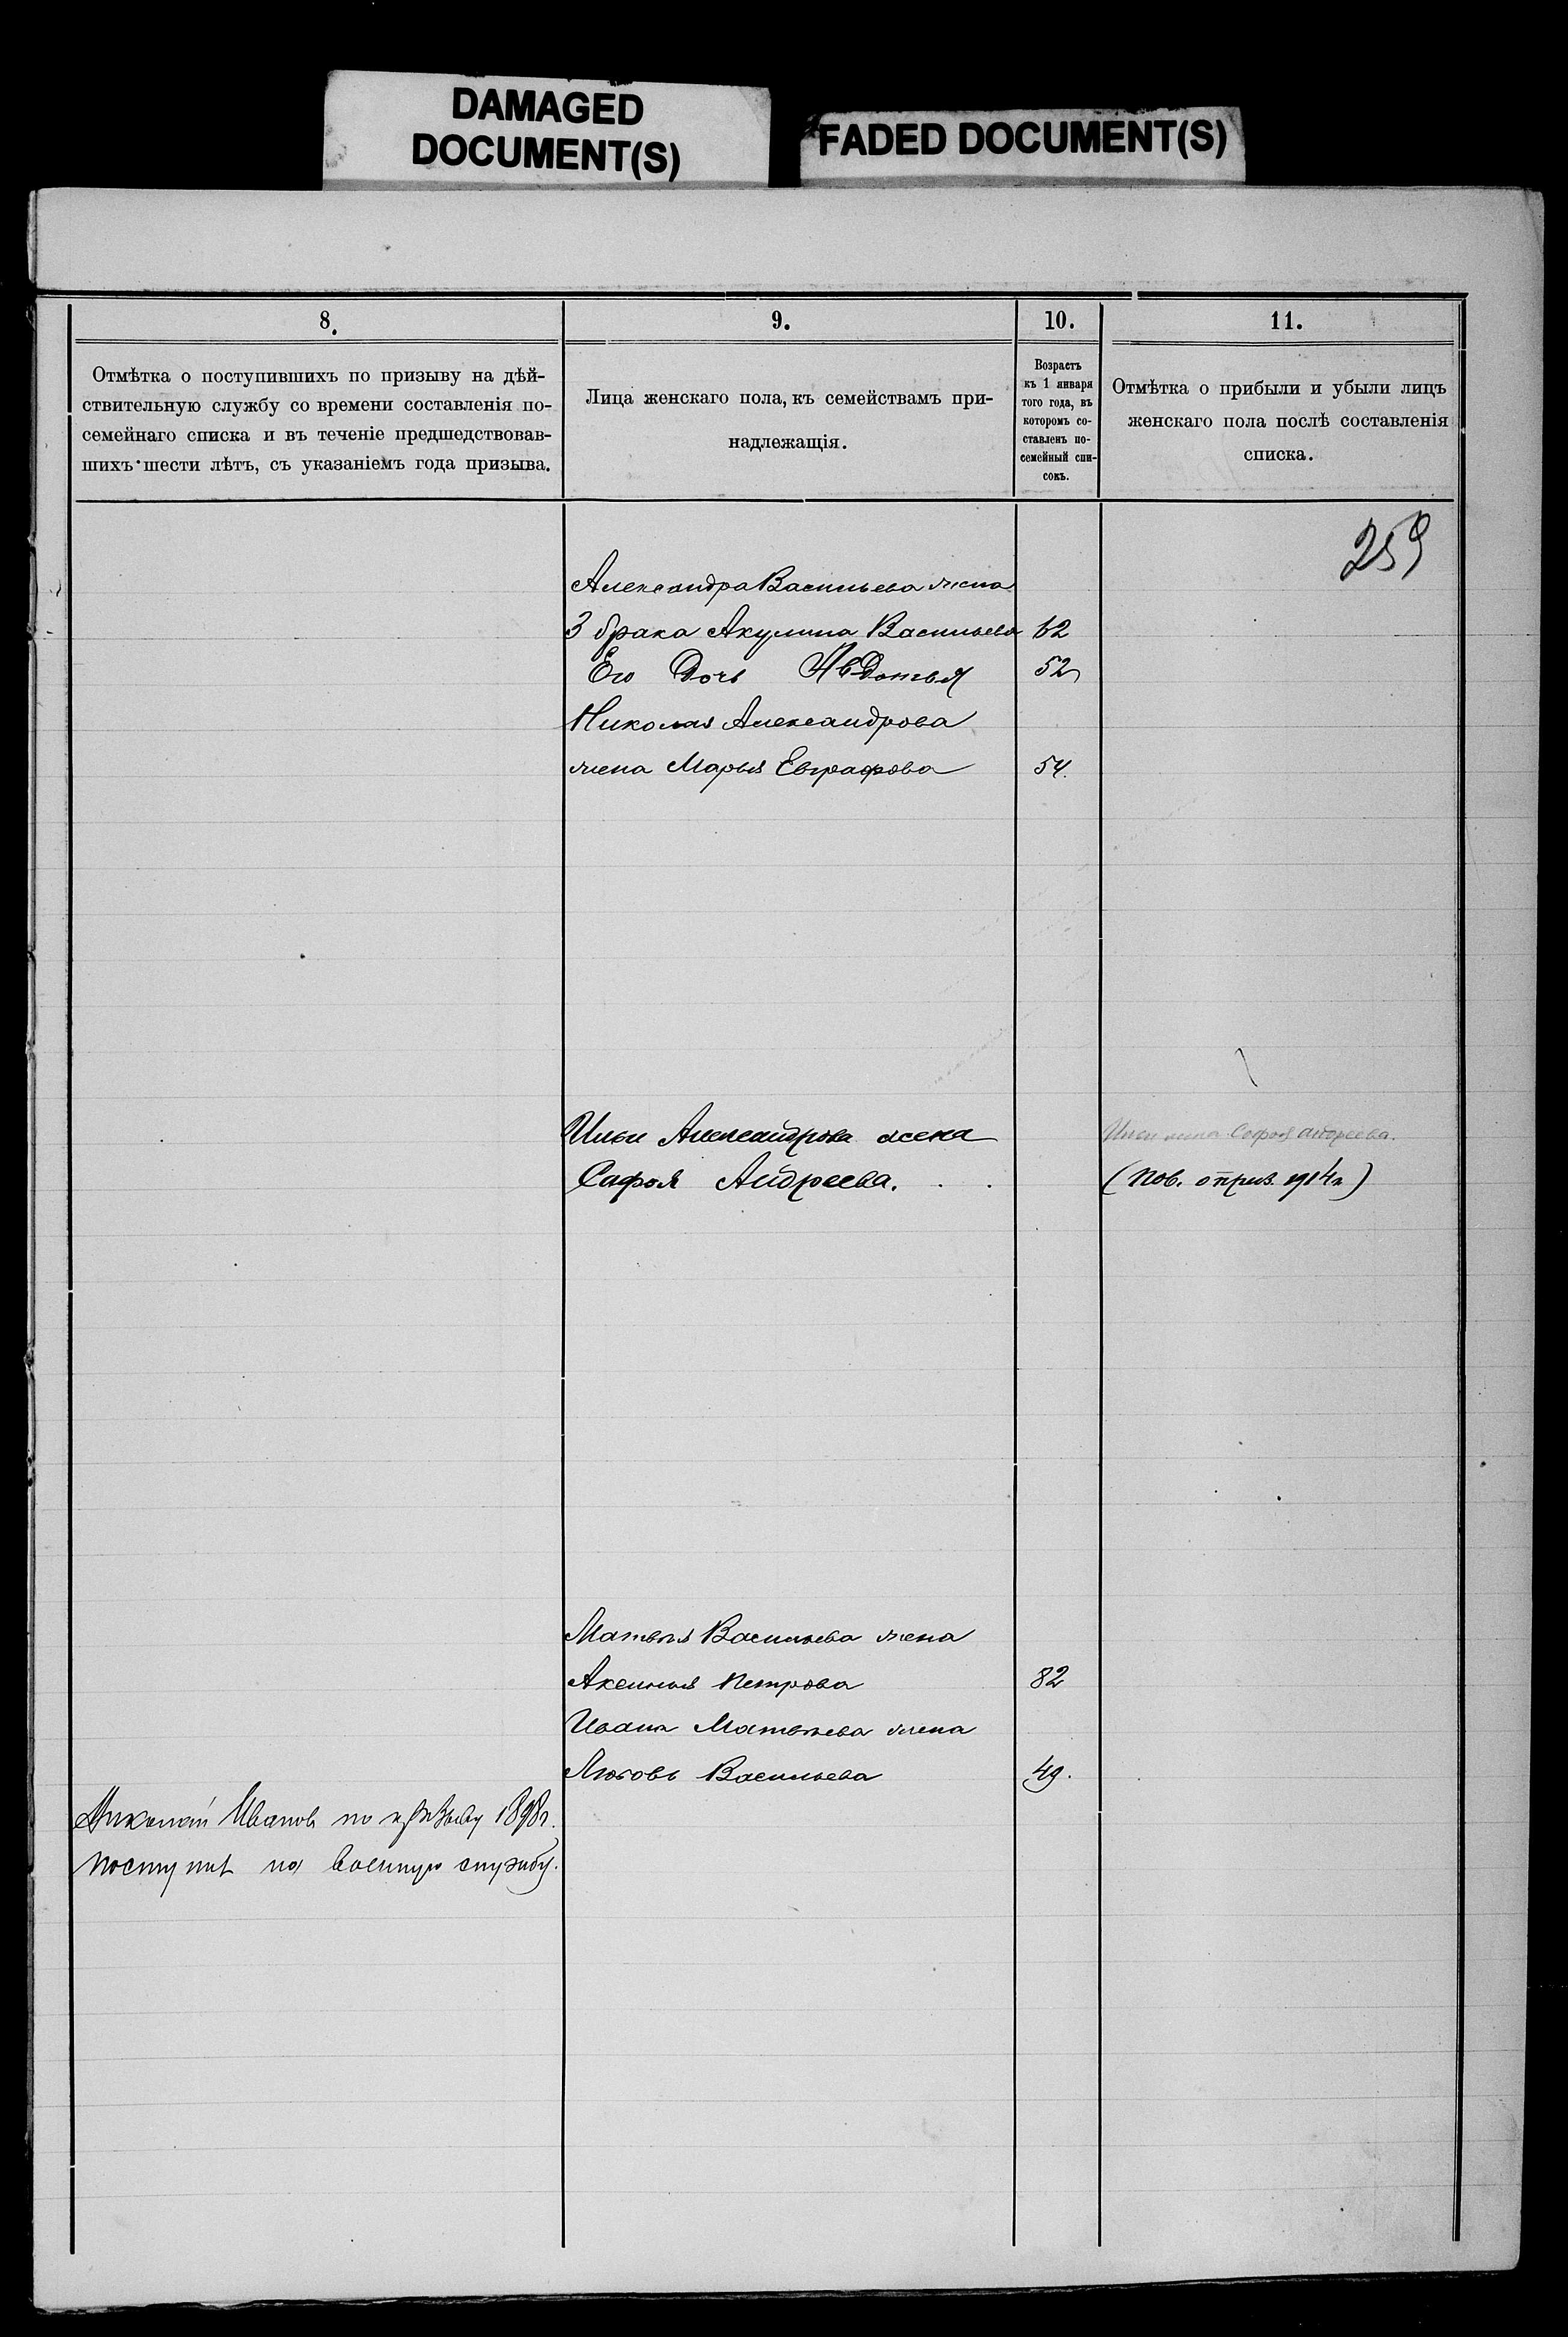 DAMAGED
DOCUMENT(S)
FADED DOCUMENT(S)
8.
Отмѣтка о поступившихъ по призыву на дѣй-
ствительную службу со времени составленія по-
семейнаго списка и въ теченіе предшедствовав-
шихъ шести лѣтъ, съ указаніемъ года призыва.
9.
Лица женскаго пола, къ семействамъ при-
надлежащія.
10.
Возрастъ
къ 1 января
того года, въ
которомъ со-
ставленъ по-
семейный спи-
сокъ.
11.
Отмѣтка о прибыли и убыли лицъ
женскаго пола послѣ составленія
списка.
259
Александра Васильева жена
3 брака Акулина Васильева 62
Его Дочь Авдотья 52
Николая Александрова
жена Марья Евграфова 54.
Ильи Александрова жена
Софья Андреева. . .
Ильи жена Софья Андреева.
(Пов. о приз. 1914 г)
Матвѣя Васильева жена
Аксинья Петрова 82
Ивана Матвѣева жена
Любовь Васильева 49.
Николай Ивановъ по призыву 1898 г.
поступилъ на военную службу.